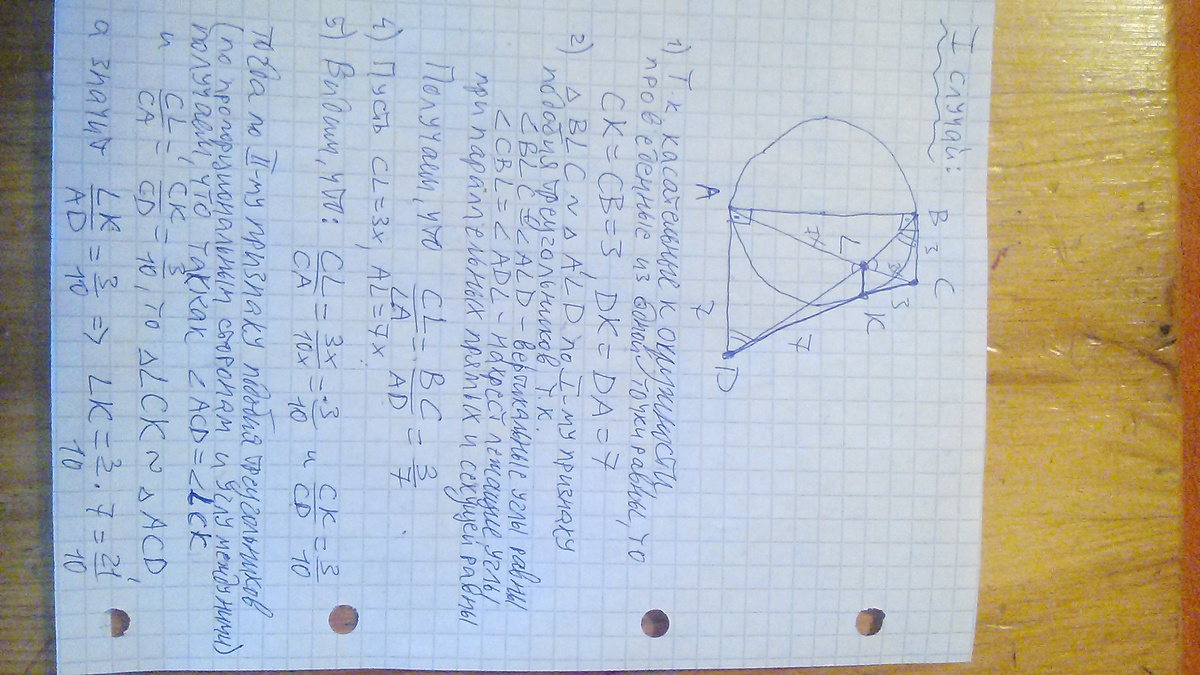 I случай:
A
B
3
C
L
7x
3x
3
K
7
7
D
1) Т.к касательные к окружности,
проведенные из одной точки равны, то
CK = CB = 3 DK = DA = 7
2) △ BLC ~ △ ALD по I-му признаку
подобия треугольников т.к.
∠BLC = ∠ALD - вертикальные углы равны
∠CBL = ∠ADL - накрест лежащие углы
при параллельных прямых и секущей равны
Получаем, что CL/LA = BC/AD = 3/7
4) Пусть CL = 3x, AL = 7x.
5) Видим, что: CL/CA = 3x/10x = 3/10 и CK/CD = 3/10
тогда по II-му признаку подобия треугольников
(по пропорциональным сторонам и углу между ними)
получаем, что так как ∠ACD = ∠LCK
и CL/CA = CK/CD = 3/10, то △LCK ~ △ACD
а значит LK/AD = 3/10 => LK = 3/10 · 7 = 21/10